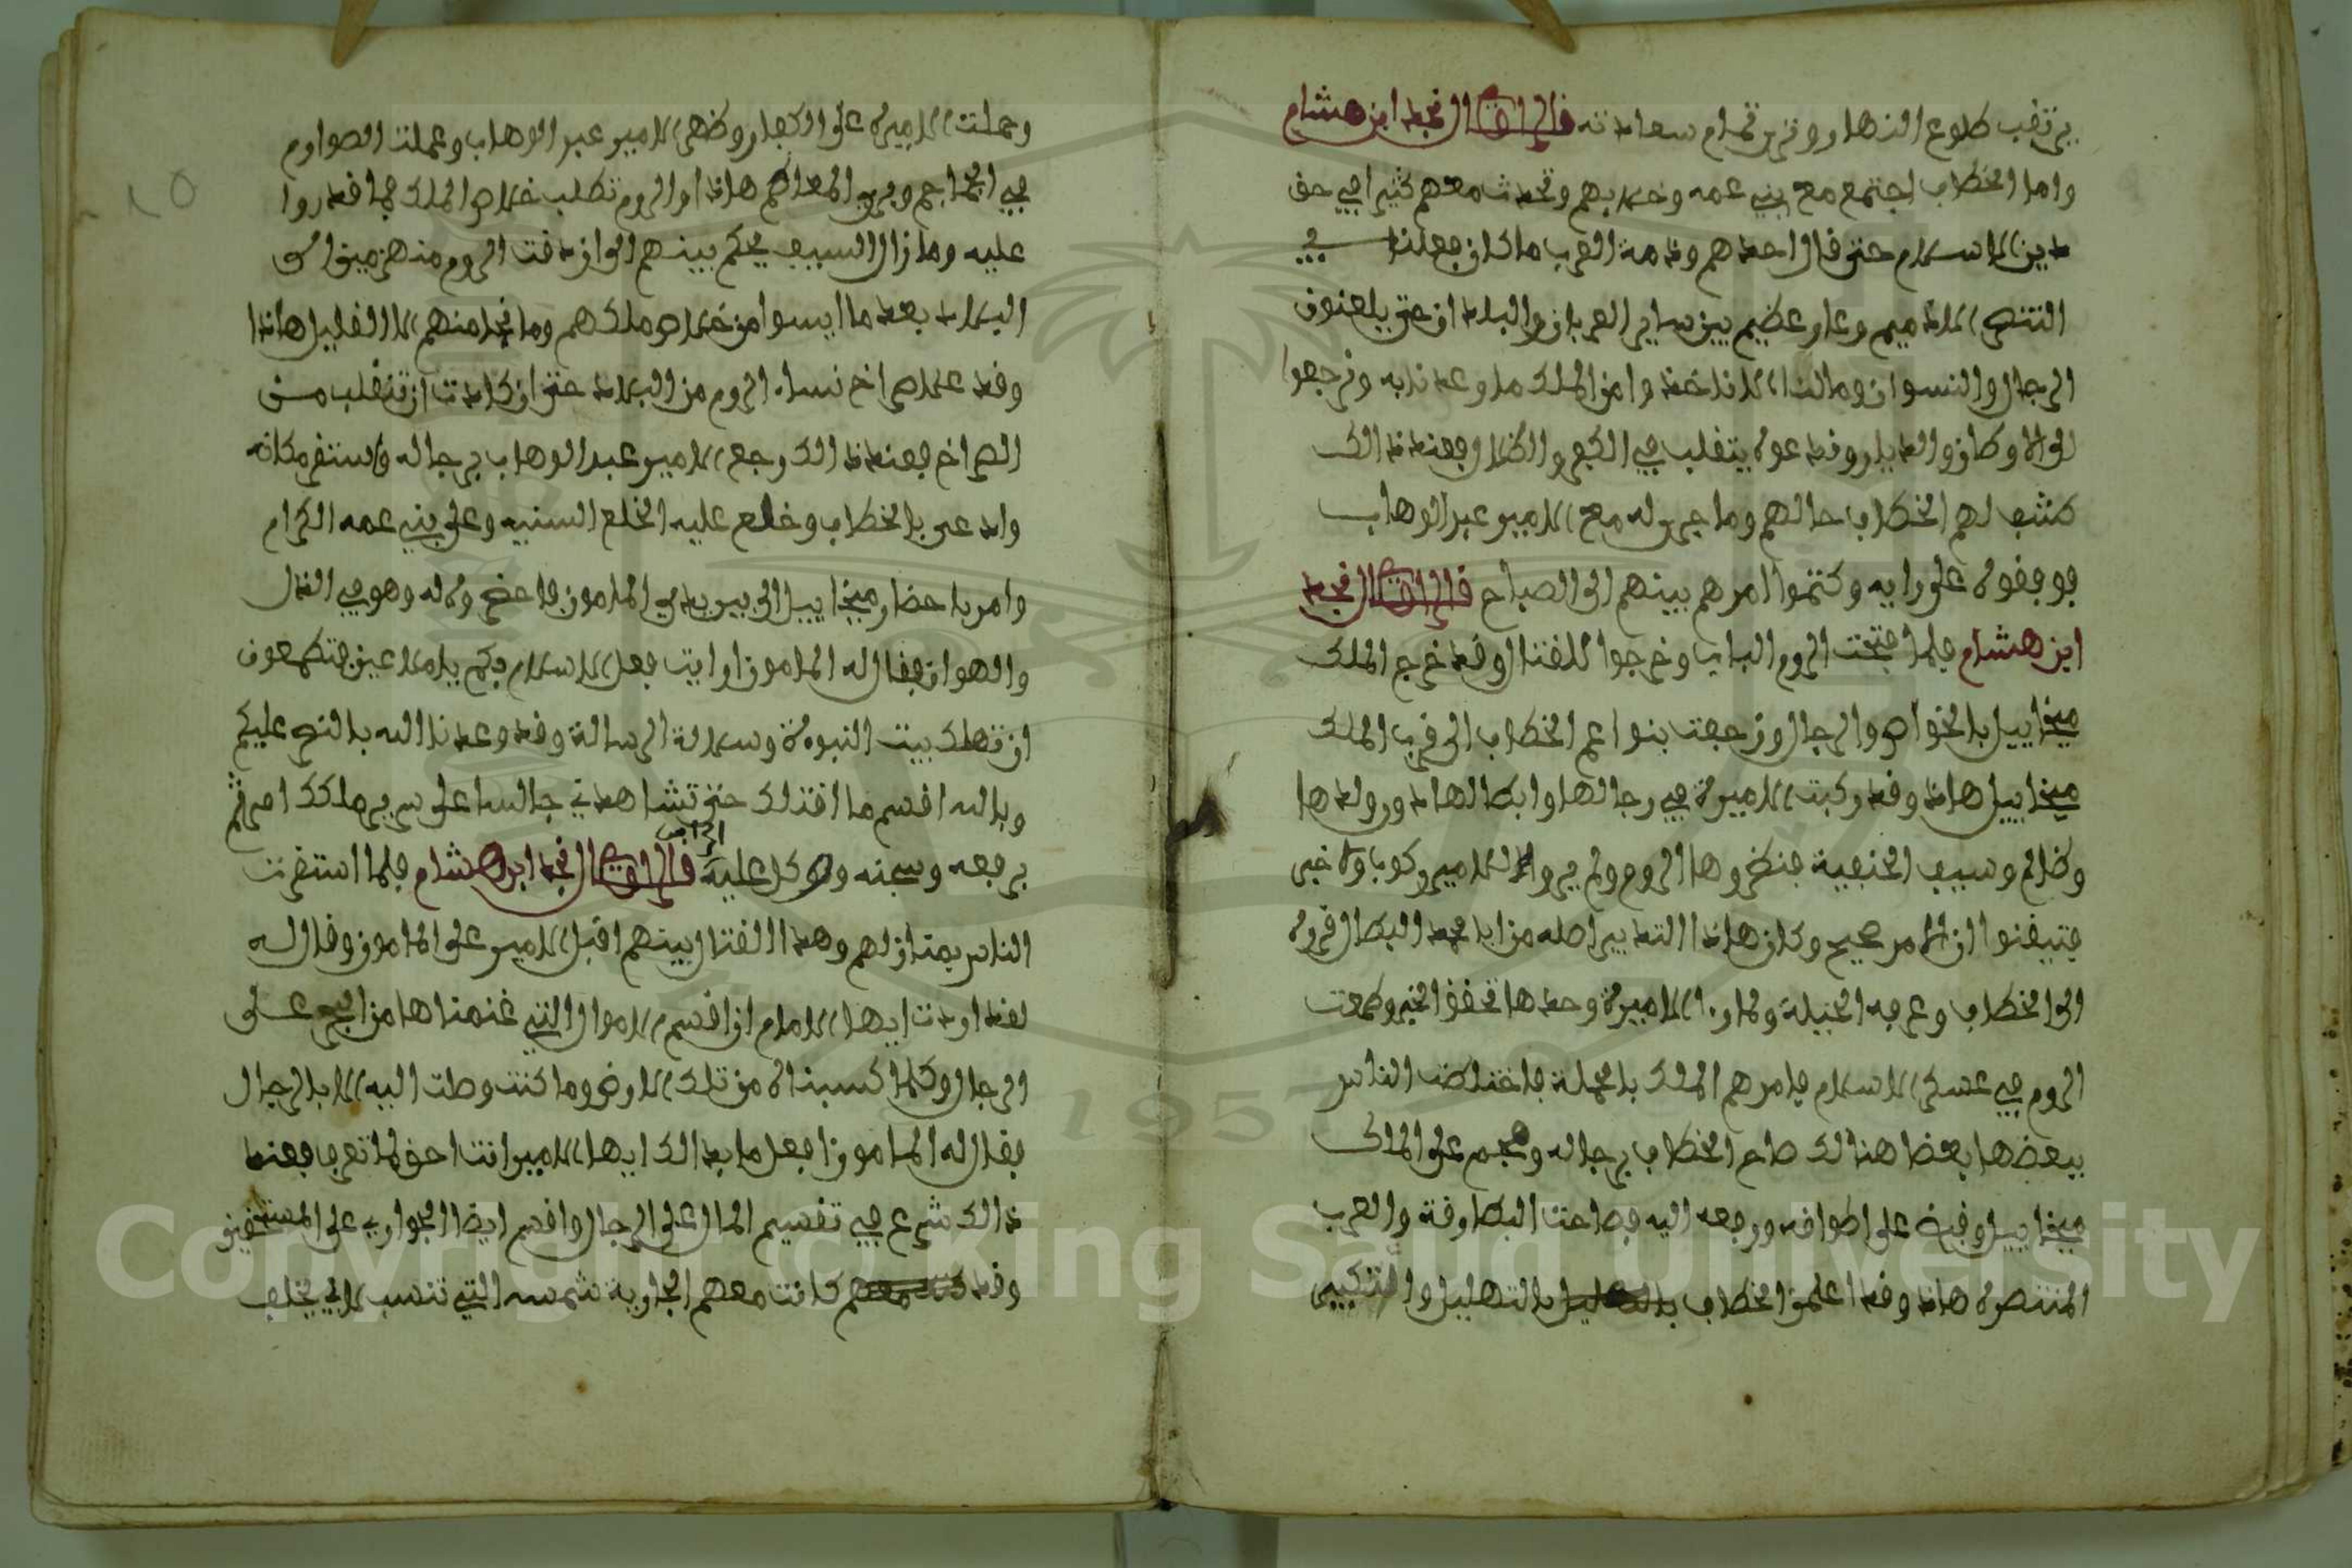 يرتقب طلوع النهار وقرب تمام سعادته قال الراوي نجد ابن هشام
واما الخطاب اجتمع مع بني عمه وخلا بهم وتحدث معهم كثيرا في حق
دين الاسلام حتى قال احدهم وذمة العرب ما كان فعلنا في
التنصر الا ذميم وعار عظيم بين ساير العربان والبلدان حتى يلعنون
الرجال والنسوان ومالنا الا ناخذوا من الملك ما وعدنا به ونرجعوا
كشف لهم الخطاب حالهم وما جرى له مع الامير عبد الوهاب
فوفقوه على رايه وكتموا امرهم بينهم الى الصباح قال الراوي نجد
ابن هشام فلما فتحت الروم الباب وخرجوا للقتال وقد خرج الملك
ميخاييل بالخواص والرجال وزحفت بنوا عم الخطاب الى قرب الملك
ميخاييل هاذا وقد ركبت الاميرة في رجالها وابطالها وولدها
وظالم وسيف الحنفية فنظروها الروم ولم يروا للامير ركوبا ولا خبر
فتيقنوا ان الامر صحيح وكان هاذا التدبير اصله من ابا محمد البطال قروه
الى الخطاب وعرفه الحيلة ولما راا الاميرة وحدها تحقق الخبر وطمعت
الروم في عسكر الاسلام فامرهم الملك بالحملة فاختلطت الناس
ببعضها بعضا هنالك صاح الخطاب برجاله وهجم على الملك
ميخاييل وقبض على اطواقه ورفعه اليه فصاحت البطارقة والعرب
المتنصره هاذا وقد اعلن الخطاب بالتهليل والتكبير
وحملت الاميرة على الكفار وظهر الامير عبد الوهاب وعملت الصوارم
في الجماجم وبري المعاصم هاذا والروم تطلب خلاص الملك فما قدروا
عليه وما زال السيف يحكم بينهم الى ان دقت الروم منهزمين الى
البلاد بعد ما ايسوا من خلاص ملكهم وما نجا منهم الا القليل هاذا
وقد علا صراخ نساء الروم من البلاد حتى ان كادت ان تنقلب من
الصراخ فعند ذالك رجع الامير عبد الوهاب برجاله واستقر مكانه
وادعى بالخطاب وخلع عليه الخلع السنيه وعلى بني عمه الكرام
وامر باحضار ميخاييل الى بين يدي المامون فاحضروه له وهو في الذل
والهوان فقال له المامون ارايت فعل الاسلام بكم يا ملاعين فتطمعون
ان تهلك بيت النبوة وسلالة الرسالة وقد وعدنا الله بالنصر عليكم
وبالله اقسم ما اقتلك حتى تشاهدني جالسا على سرير ملكك امر ثم
برفعه وسجنه ووكل عليه قال الراوي نجد ابن هشام فلما استقرت
الناس بمنازلهم وهدا القتال بينهم اقبل الامير على المامون وقال له
لقد اردت ايها الامام ان اقسم الاموال التي غنمناها من البحر على
الرجال وكلما كسبناه من تلك الارض وما كنت وصلت اليه الا بالرجال
فقال له المامون افعل ما بدا لك ايها الامير انت احق لما تعرف فعند
ذالك شرع في تقسيم المال على الرجال واقسم ايضا الجوار على المستحقين
وقد كانت معهم الجارية شمسه التي تنسب لابي يخلف